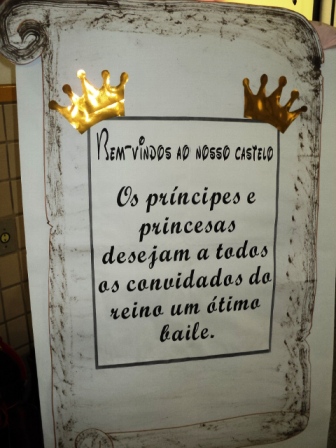 Bem-vindos ao nosso castelo
Os príncipes e
princesas
desejam a todos
os convidados do
reino um ótimo
baile.